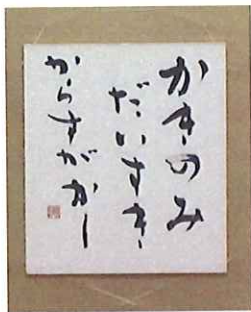 かきのみ
だいすき
からすがかー